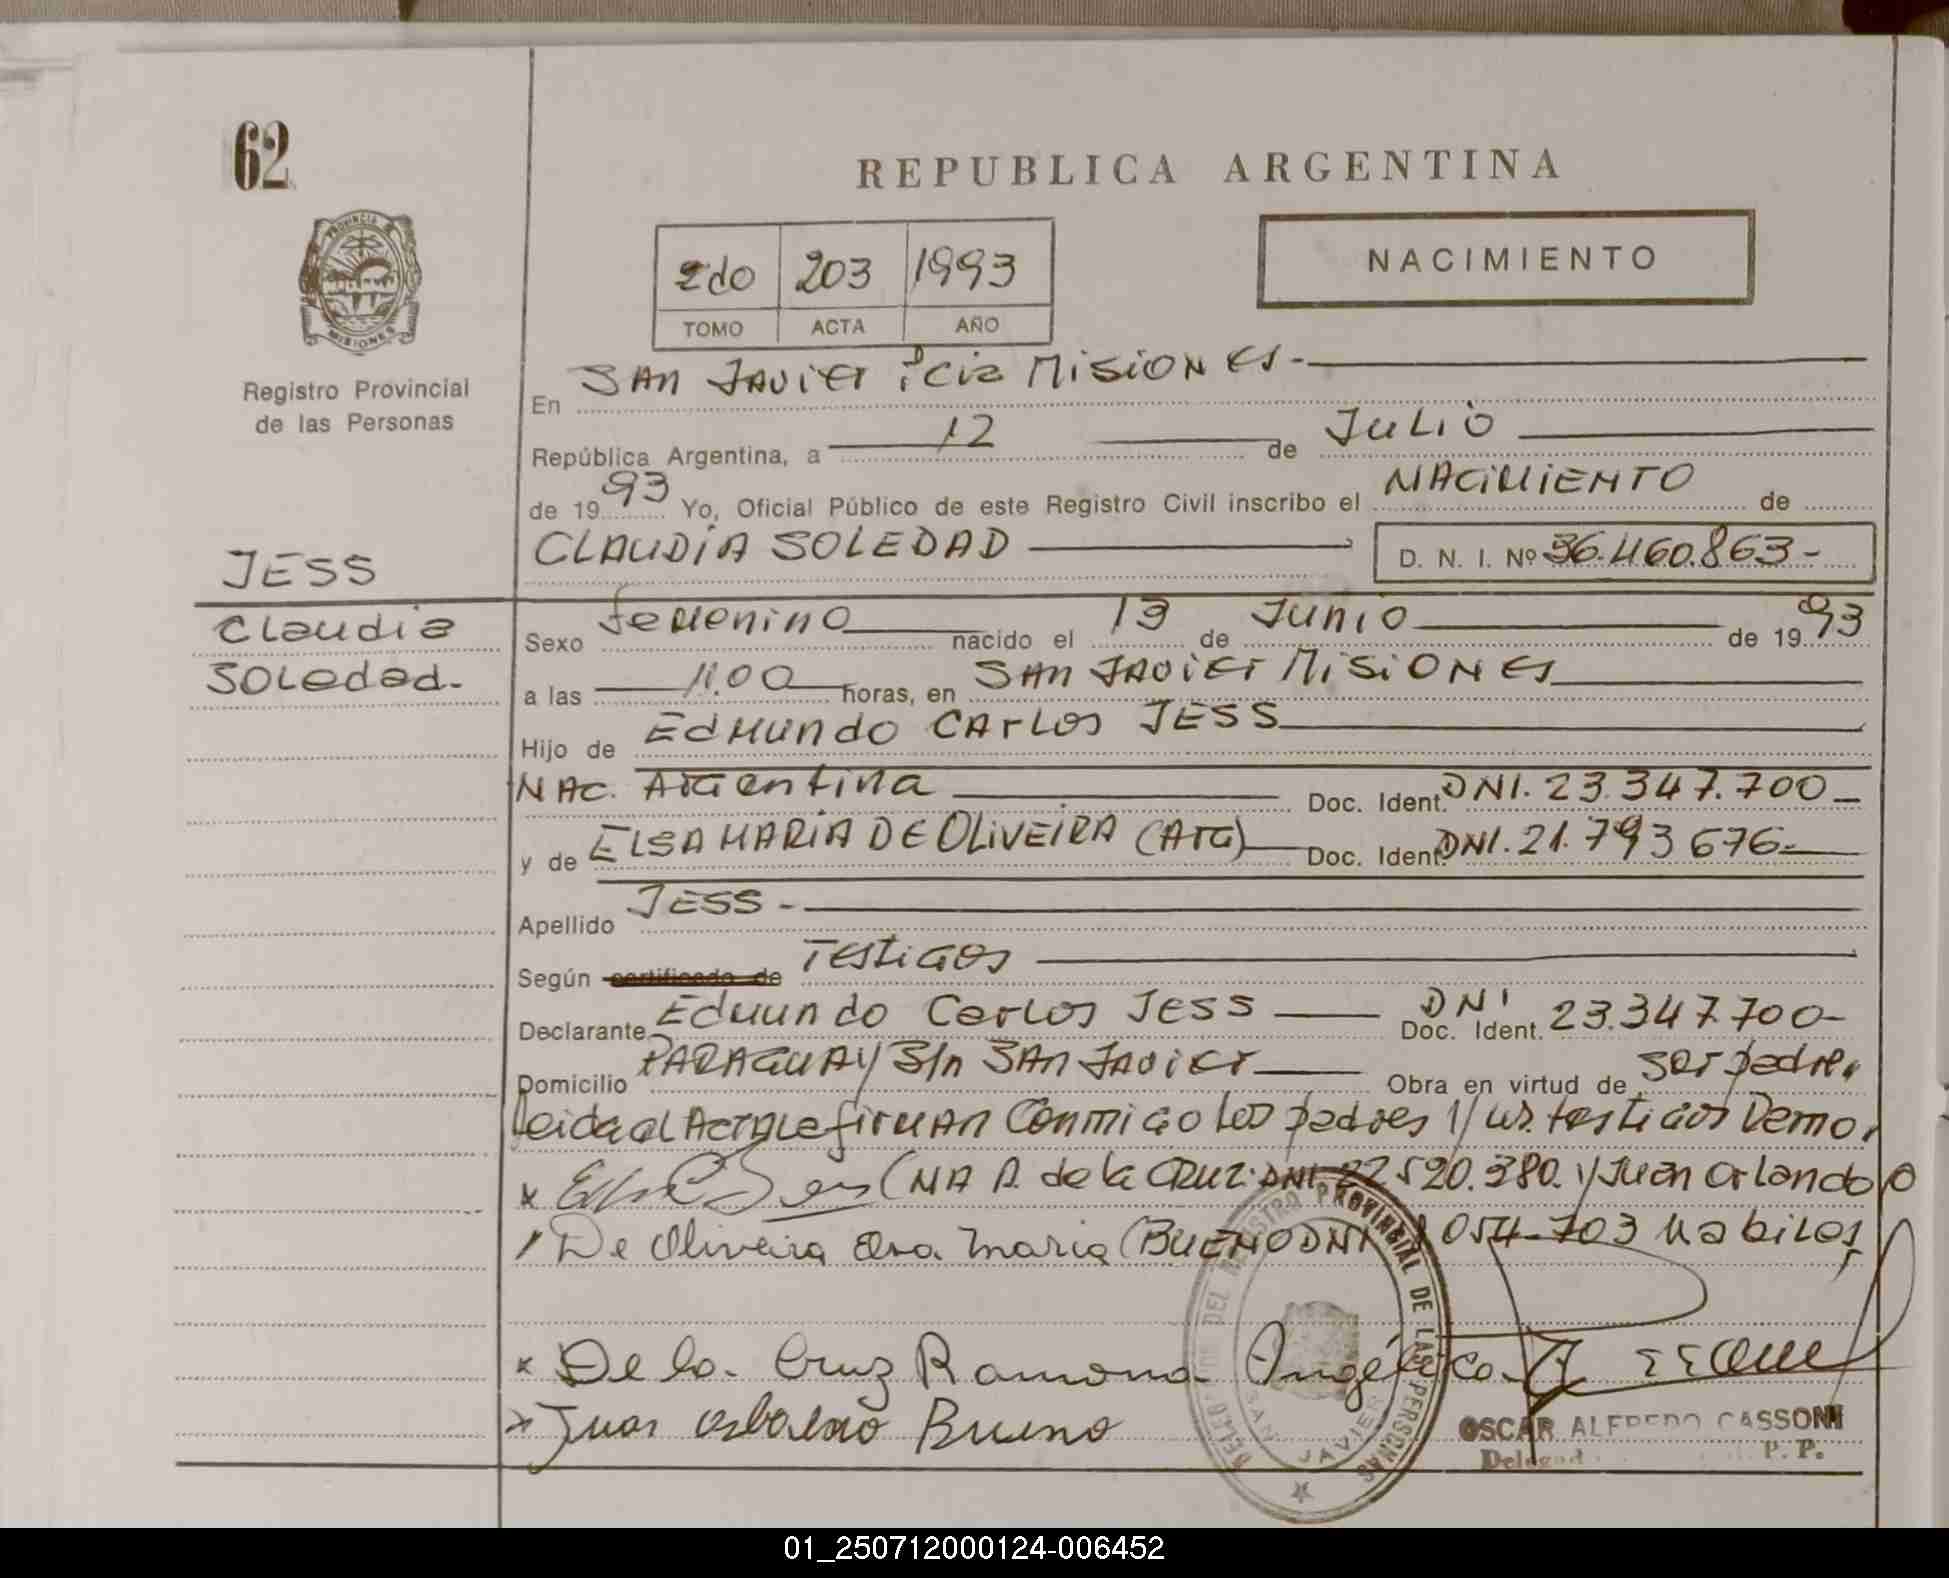 62
REPUBLICA ARGENTINA
2do 203 1993
TOMO ACTA AÑO
NACIMIENTO
PROVINCIA DE MISIONES
Registro Provincial
de las Personas
En SAN JAVIER Pcia MISIONES.-
República Argentina, a 12 de JULIO
de 1993 Yo, Oficial Público de este Registro Civil inscribo el NACIMIENTO de
CLAUDIA SOLEDAD D. N. I. Nº 36.460.863-
JESS
Claudia
SOLedad.-
Sexo femenino nacido el 13 de Junio de 1993
a las 11.00 horas, en SAN JAVIER MISIONES
Hijo de EdMundo CArLos JESS
NAC. Argentina Doc. Ident. DNI. 23.347.700-
y de ELSA MARIA DE OLIVEIRA (ARG) Doc. Ident. DNI. 21.793 676-
Apellido JESS-
Según certificado de Testigos
Declarante Edmundo Carlos JESS Doc. Ident. DNI 23.347.700-
Domicilio PARAGUAY S/n SAN JAVIER Obra en virtud de ser padre.
Leida el Acta Le firman Conmigo Los padres y los testigos
(NA A. de la CRUZ. DNI 22 520.380. y Juan Orlando
De Oliveira Maria (BUENO DNI 054-703 habiles
x De la Cruz Ramona Angélica
x Juan Osbaldo Bueno
DELEG. DEL REGISTRO PROVINCIAL DE LAS PERSONAS
SAN JAVIER
OSCAR ALFREDO CASSONI
P. P.
01_250712000124-006452